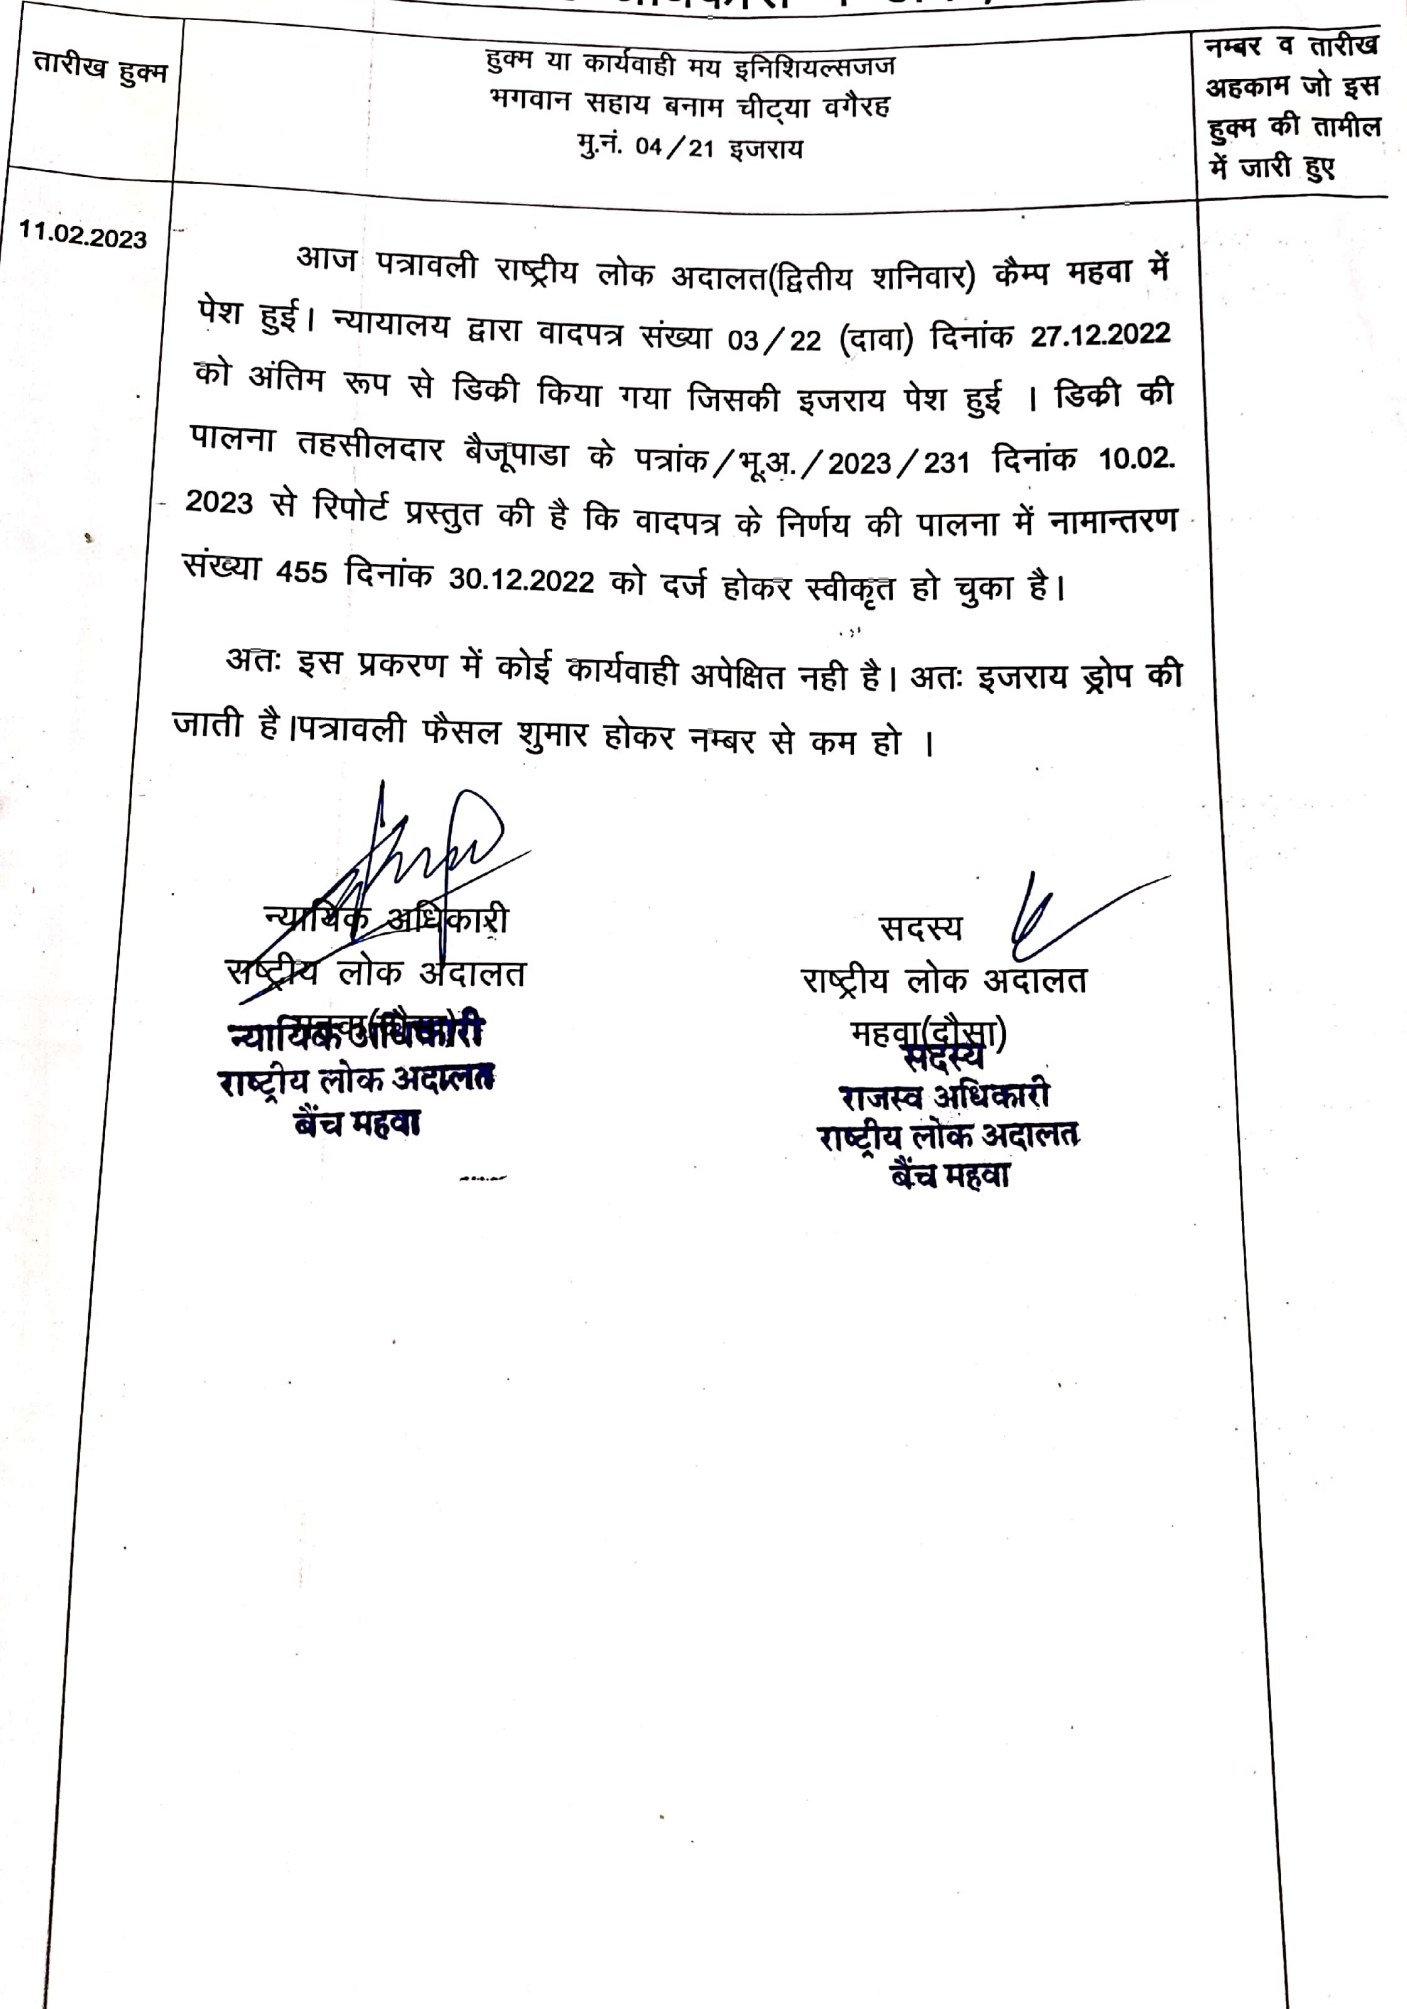 तारीख हुक्म
हुक्म या कार्यवाही मय इनिशियल्सजज
भगवान सहाय बनाम चीट्या वगैरह
मु.नं. 04/21 इजराय
नम्बर व तारीख
अहकाम जो इस
हुक्म की तामील
में जारी हुए
11.02.2023
आज पत्रावली राष्ट्रीय लोक अदालत(द्वितीय शनिवार) कैम्प महवा में
पेश हुई। न्यायालय द्वारा वादपत्र संख्या 03/22 (दावा) दिनांक 27.12.2022
को अंतिम रूप से डिकी किया गया जिसकी इजराय पेश हुई । डिकी की
पालना तहसीलदार बैजूपाडा के पत्रांक/भू.अ./2023/231 दिनांक 10.02.
2023 से रिपोर्ट प्रस्तुत की है कि वादपत्र के निर्णय की पालना में नामान्तरण
संख्या 455 दिनांक 30.12.2022 को दर्ज होकर स्वीकृत हो चुका है।
अतः इस प्रकरण में कोई कार्यवाही अपेक्षित नही है। अतः इजराय ड्रोप की
जाती है।पत्रावली फैसल शुमार होकर नम्बर से कम हो ।
न्यायिक अधिकारी
राष्ट्रीय लोक अदालत
न्यायिक अधिकारी
राष्ट्रीय लोक अदालत
बैंच महवा
सदस्य
राष्ट्रीय लोक अदालत
महवा(दौसा)
सदस्य
राजस्व अधिकारी
राष्ट्रीय लोक अदालत
बैंच महवा